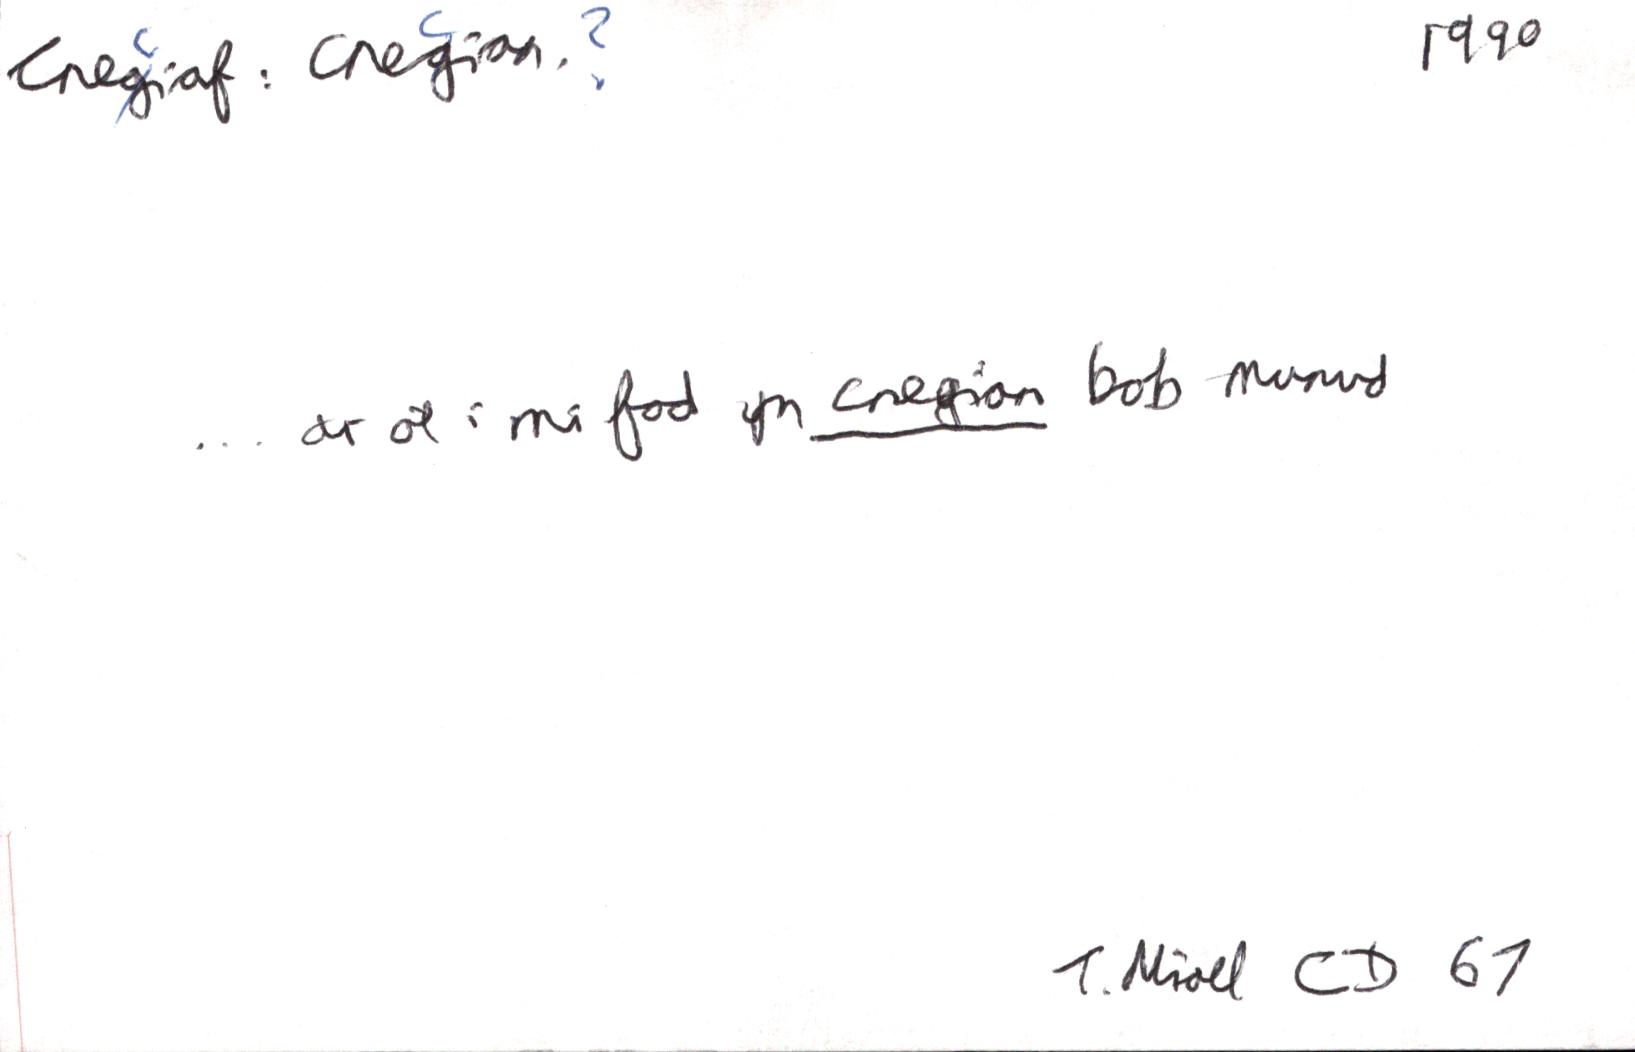 Cnegiaf: Cnegian. ? 1990
c c
.... ar ôl i mi fod yn cnegian bob munud
T. Miall CD 67